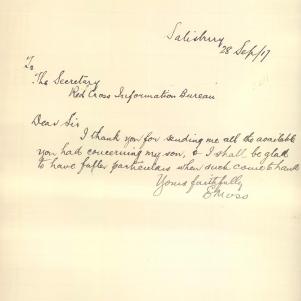 Salisbury
28 Sep/17
To
The Secretary
Red Cross Information Bureau
Dear Sir
I thank you for sending me all the available
you had concerning my son, & I shall be glad
to have fuller particulars when such come to hand
Yours faithfully
E Moss